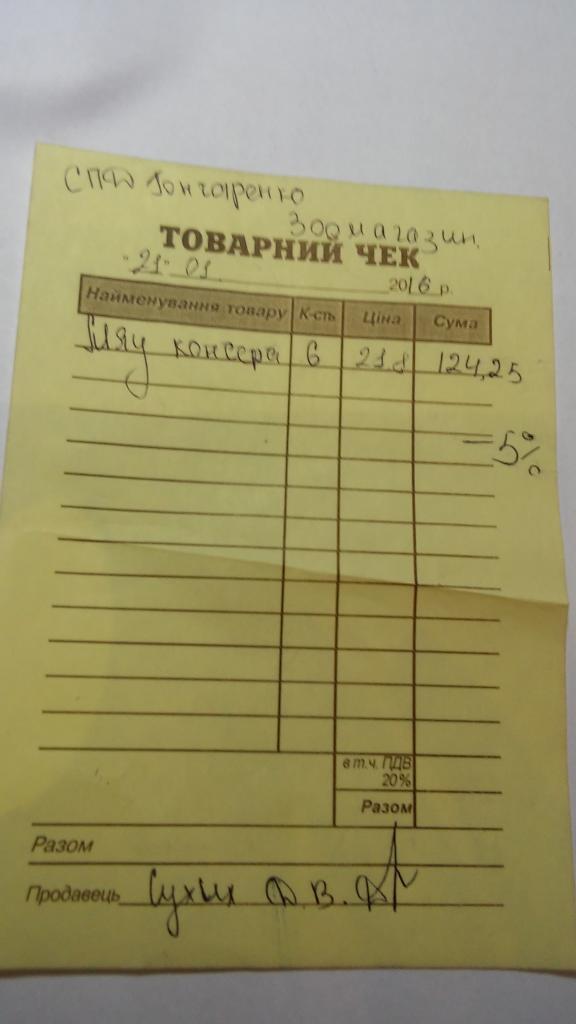 СПД Гончаренко
Зоомагазин.
ТОВАРНИЙ ЧЕК
"21" 01 2016 р.
Найменування товару К-сть Ціна Сума
консерв 6 21.8 124,25
-5%
в т.ч. ПДВ
20%
Разом
Разом
Продавець Сухих Д. В.